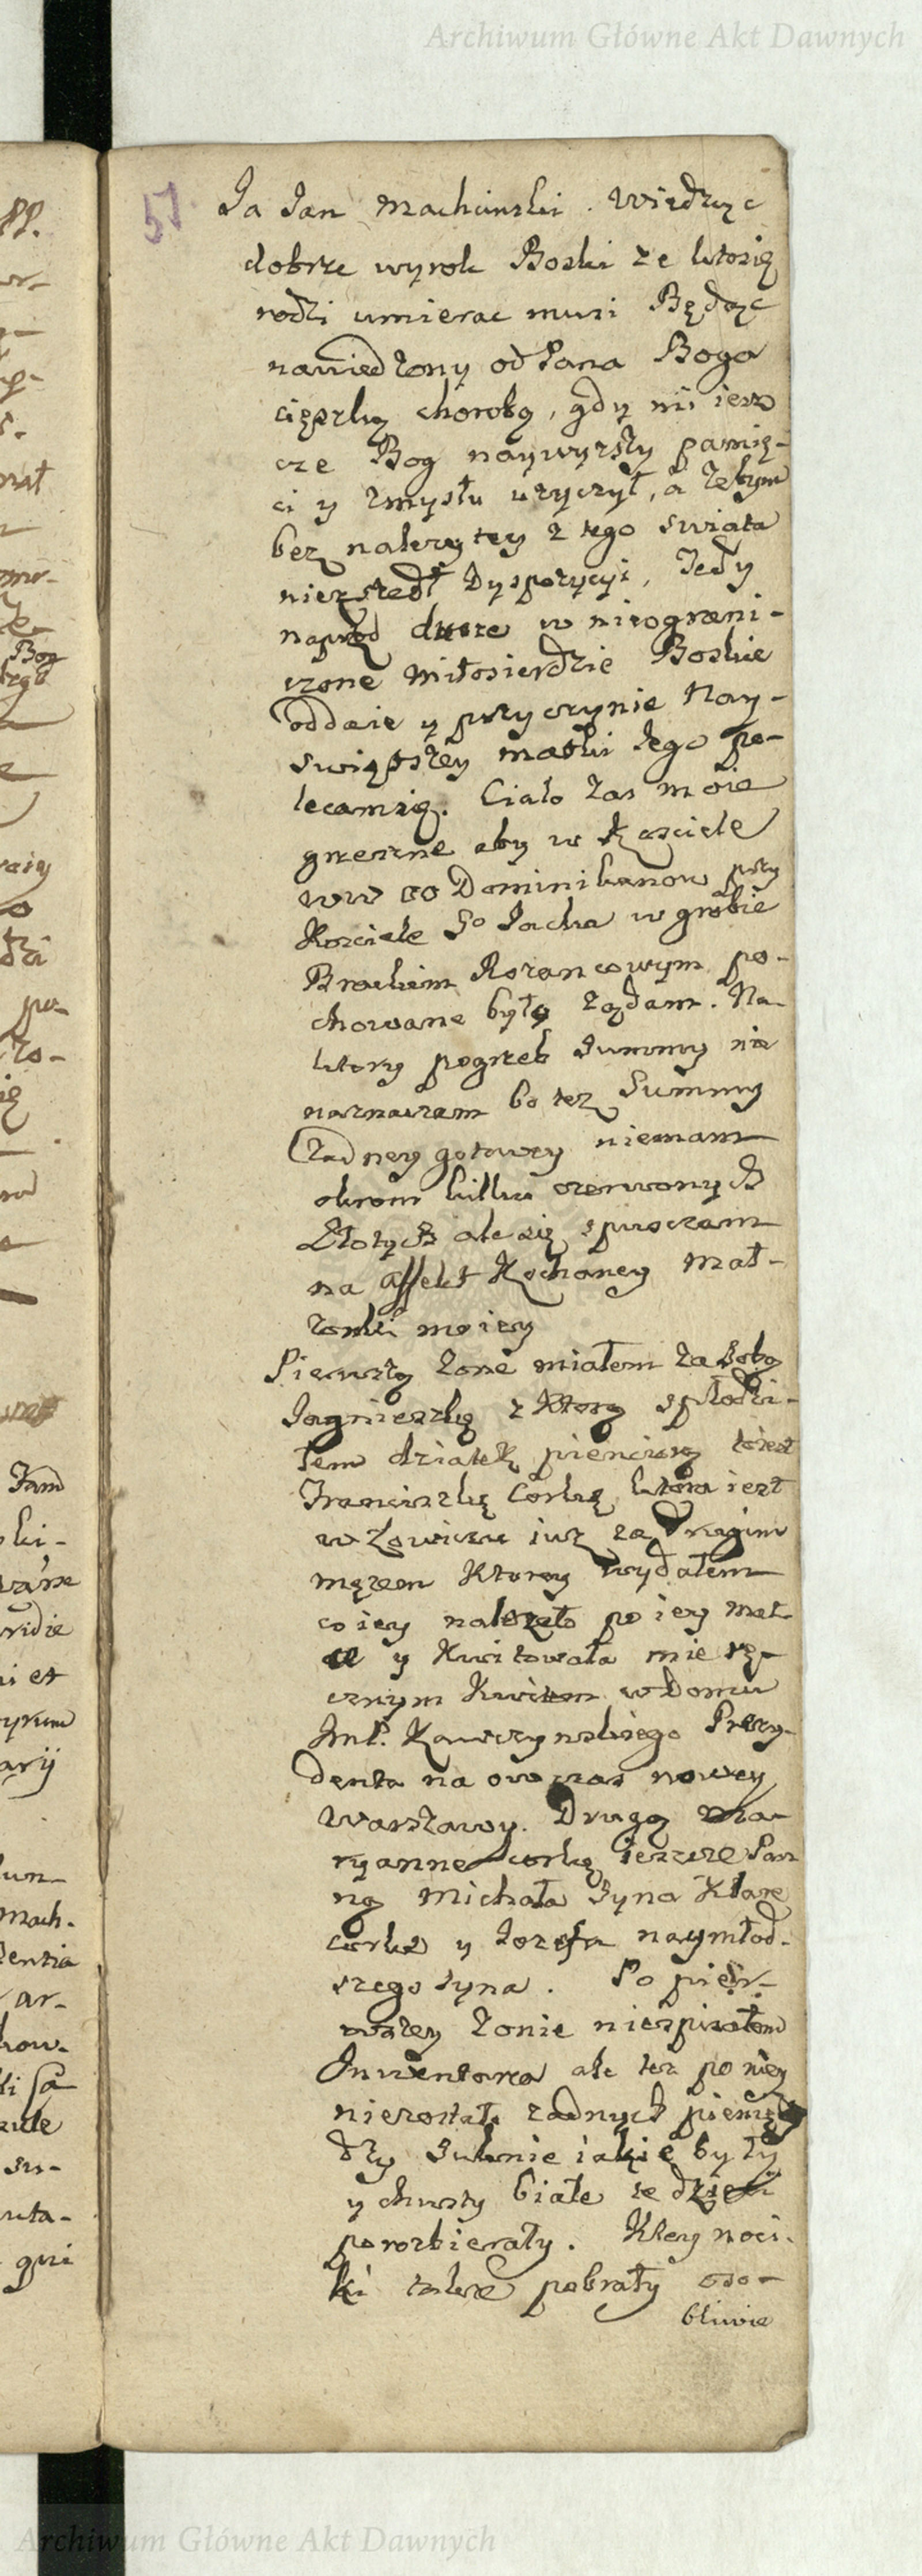 Archiwum Główne Akt Dawnych
51
Ja Jan Machcinski. Wiedząc
dobrze wyrok Boski ze ktosię
rodzi umierac musi Będąc
nawiedzony od Pana Boga
cięszką chorobą, gdy mi iesz
cze Bog naywyzszy pamię-
ci y zmysłu uzyczył, a zebym
bez nalezytey z tego swiata
niezszedł Dyspozycyi, Tedy
naprzod dusze w nieograni-
czone Miłosierdzie Boskie
oddaie y przyczynie Nay-
swiętszey matki Jego po-
lecamsię. Ciało zas moie
grzeszne aby w Kosciele
WW OO Dominikanow przy
Kosciele So Jacka w grobie
Brackim Rozancowym po-
chowane było ządam. Na
ktory pogrzeb Summy nie
naznaczam bo tez Summy
zadney gotowey niemam
okrom kilku czerwonych
Złotych ale się spuszczam
na affekt Kochaney Mał-
zonki moiey
Pierwszą zone miałem za Sobą
Jagnieszkę z Ktorą spłodzi-
łem dziatek pięcioro toiest
Franciszkę Corkę ktora iest
w Łowiczu iuz za drugim
męzem Ktorey wydałem
co iey nalezało po iey Mat
ce y Kwitowała mie rę-
cznym Kwitem w Domu
JmP. Kawczynskiego Prezy-
denta na ow czas nowey
Warszawy. Drugą Ma-
ryanne corkę ieszcze Pan
ną Michała Syna Klare
corke y Jozefa naymłod-
szego syna. Po pier-
wszey zonie niespisałem
Inwentarza ale tez po niey
niezostało zadnych pienię
dzy Suknie iakie były
y chusty białe te dzieci
porozbierały. Kleynoci-
ki takze pobrały oso-
bliwie
Archiwum Główne Akt Dawnych